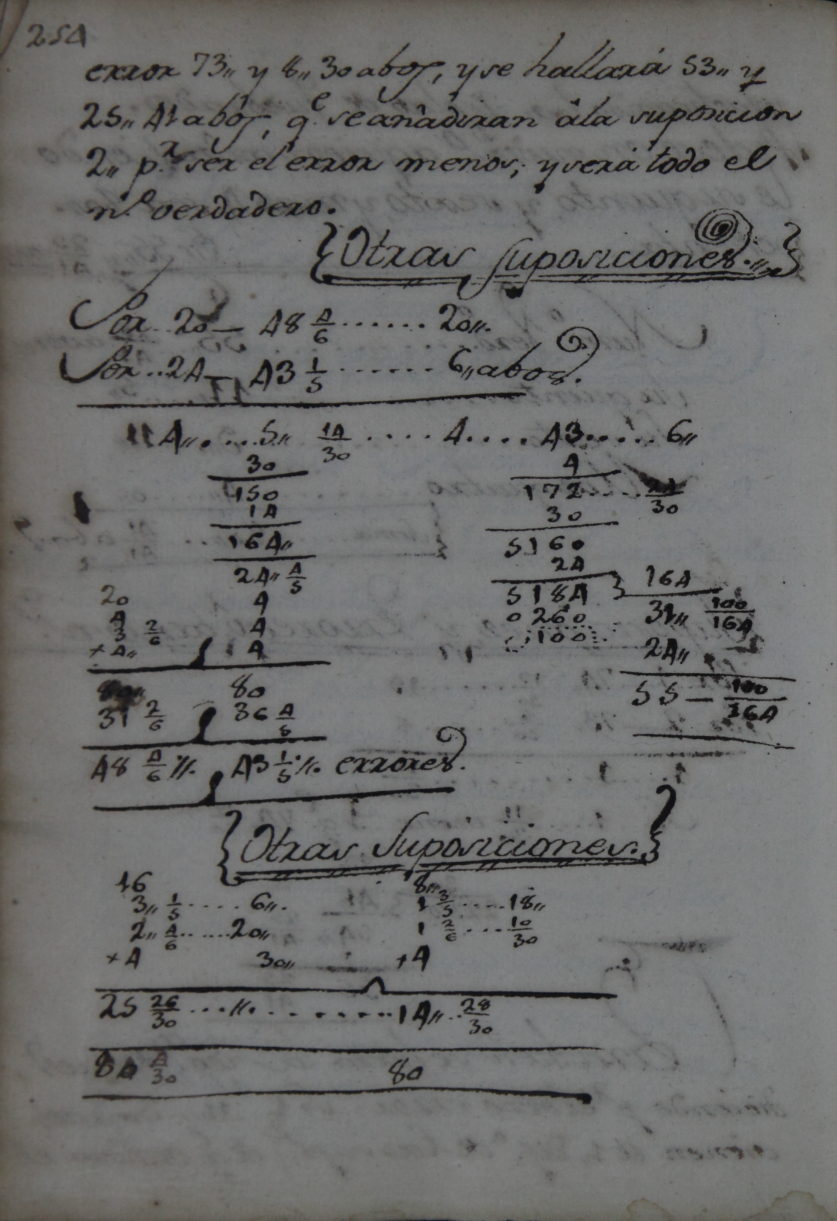 254
error 73,, y 8,, 30 abos, y se hallará 53,, y
25,, 41 abos, q.e se añadiran â la suposicion
2,, p.r ser el error menos; y será todo el
n.o verdadero.
{Otras suposiciones.,,}
Por 20 — 48 4/6 ...... 20,,
Por .. 24 — 43 1/5 ...... 6,, abos.
4,, .... 5,, 14/30 .... 4 .... 43 ..... 6,,
30 4
150 172 .. 24/30
14 30
164,, 5160
24,, 4/5 24
20 4 5184 } 164
4 4 0260 31,, 100/164
3 2/6 100 24,,
+ 4,, 4
80 80 55 — 100/164
31 2/6 36 4/5
48 4/6 //. 43 1/5 //. errores.
{Otras Suposiciones.}
16 8,,
3,, 1/5 ..... 6,, 1 3/5 .... 18,,
2,, 4/6 ..... 20,, 1 2/6 ... 10/30
+4 30,, +4
25 26/30 ... ,, ........ 14,, .. 28/30
80 4/30 80